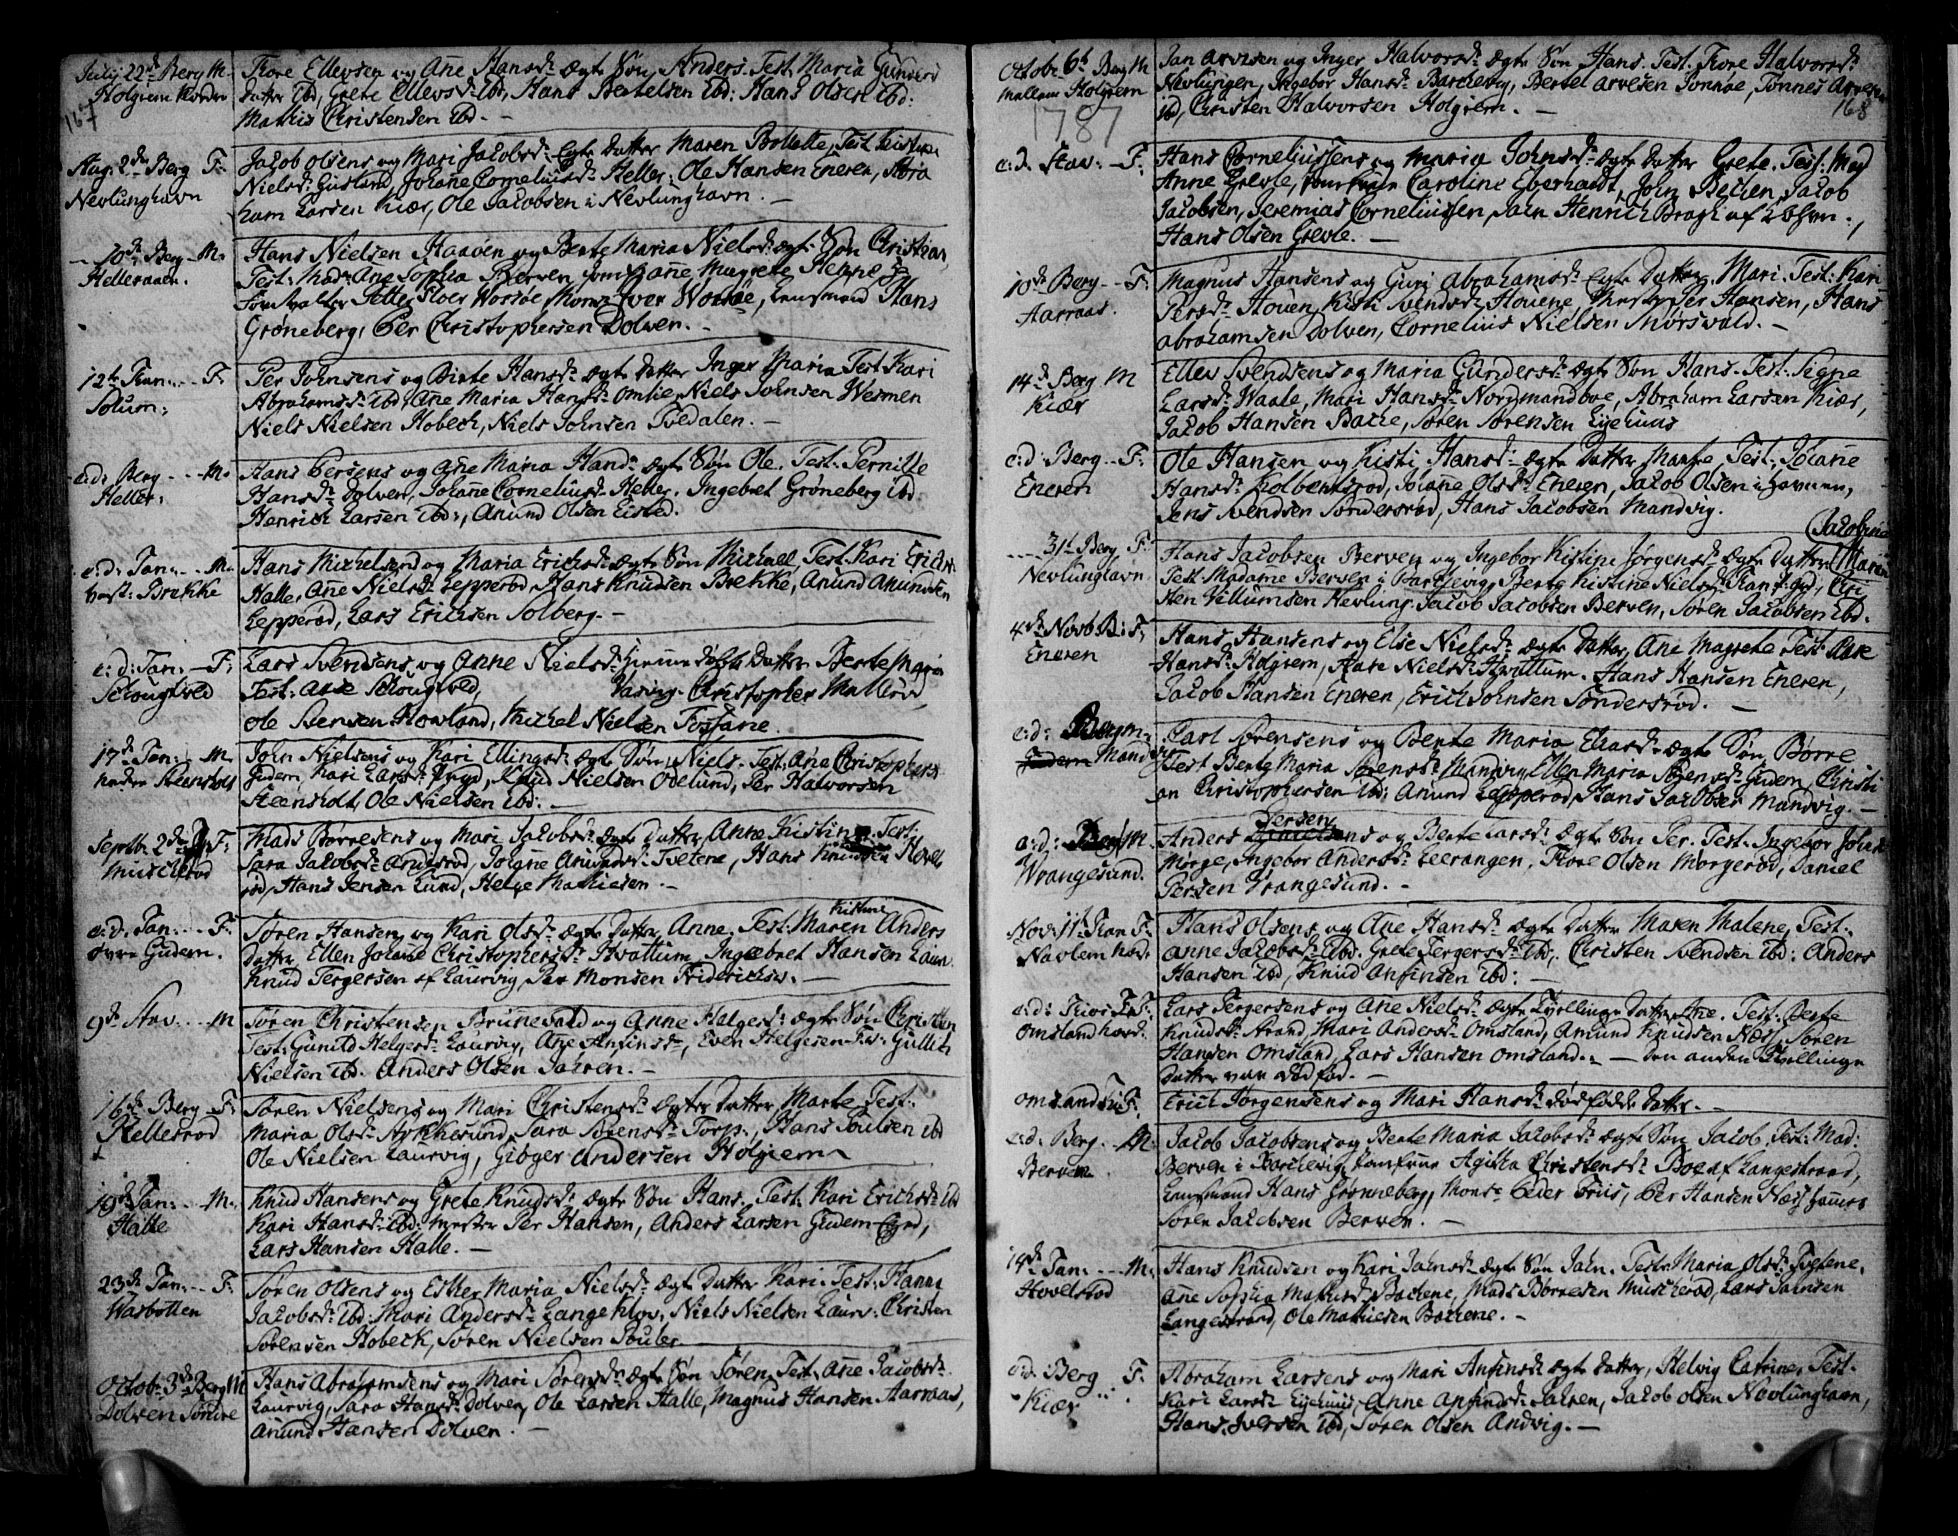 167
Julij 22d Berg M.
Holgiem Nordre
Tore Ellevsen og Ane Hansd: ægte Søn Anders. Test. Maria Gunders
datter ibd, Grete Ellevsd: ibd, Hans Bertelsen ibd: Hans Olsen ibd:
Mathis Christensen ibd. —
Aug. 2den Berg F:
Nevlunghavn
Jacob Olsens og Mari Jacobsd: Egte datter Maren Bollette, Test. Kistine
Nielsd: Gusland, Johane Corneliusd: Heller, Ole Hansen Eneren, Abra
ham Larsen Kiær, Ole Jacobsen i Nevlunghavn. —
10de Berg - M.
Helleraaen.
Hans Nielsen Haaøen og Berte Maria Nielsd: ægte Søn Christian,
Test: Mad: Ane Sophia Berven, Jomf: Hanne Magrete
Worsøe, Mons: Iver Worsøe, Lensmand Hans
Grøneberg, Per Christophersen Dolven. —
12te Tan: - F:
Solum:
Per Johnsens og Birte Hansd: ægte datter Inger Maria Test. Kari
Abrahamsd: ibd, Ane Maria Hansd: Omlie, Niels Johnsen Wesmen
Niels Nielsen Hobeck, Niels Johnsen Tvedalen. —
e:d: Berg - M.
Heller:
Hans Persens og Ane Maria Hansd: ægte Søn Ole. Test. Pernille
Hansd: Dolven, Johane Corneliusd: Heller, Ingebret Grøneberg ibd
Henrich Larsen ibd:, Anund Olsen Eisted.
e:d: Tan: - M.
vest: Brekke
Hans Michelsens og Maria Erichsd: ægte Søn Michael, Test. Kari Erichsd:
Halle, Ane Nielsd: Lepperød, Hans Knudsen Brekke, Anund Anundsen
Lepperød, Lars Erichsen Solberg. —
e:d: Tan: - F:
Schougvold
Lars Svendsens og Anne Nielsd: ægte datter Berte Maria
Test: Ane Schougvold, Christopher
Ole Svensen Howland, Michel Nielsen Fosfane.
17de Tan: M.
nedre Steensholt
John Nielsens og Kari Ellingsd: ægte Søn, Niels. Test. Ane Christophersd:
Gudem, Kari Larsd: Fryd, Knud Nielsen Odelund, Per Halvorsen
Steensholt, Ole Nielsen ibd: —
Septbr. 2den F:
Muscherød
Mads Børresens og Mari Jacobsd: ægte datter, Anne Kistine Test:
Sara Jacobsd: Johane Andersd: Tvetene, Hans Knudsen Hovels
rød, Hans Jensen Lund, Helge Mathiesen. —
e:d. Tan: - F:
øvre Gudem.
Søren Hansens og Kari Olsd: ægte datter, Anne. Test: Maren Kistine Anders
datter Ellen Johane Christophersd: Hvattum, Ingebret Hansen Laurv.
Knud Tergersen af Laurvig, Per Monsen Friderichsv. —
9de Stav. M
Søren Christensen Brunevald og Anne Helgesd: ægte Søn Christen
Test: Gunild Helgesd: Laurvig, Ane Anfinsd:, Even Helgesen Gullich
Nielsen ibd. Anders Olsen Jahren. —
16de Berg - F:
Hellesrød
Søren Nielsens og Mari Christensd: ægte datter Marte Test.
Maria Olsd: Arkhesund, Sara Sørensd: Torp, Hans Poulsen ibd
Ole Nielsen Laurvig, Gibger Andersen Holgiem
19de Tan: - M.
Halle
Knud Hansens og Grete Knudsd: ægte Søn Hans. Test: Kari Erichsd: ibd
Kari Hansd: ibd: mester Per Hansen, Anders Larsen Gudem
Lars Hansen Halle. —
23de Tan: - F:
Wasbotten
Søren Olsens og Esther Maria Nielsd: ægte datter Kari. Test: Hanna
Jacobsd: ibd: Kari Andersd: Langekløv, Niels Nielsen Laurv: Christen
Sørensen Hobeck, Søren Nielsen Poulen
Octobr: 3de Berg M
Dolven Søndre
Hans Abrahamsens og Mari Sørensd: ægte Søn Søren Test. Ane Jacobsd:
Laurvig, Sara Hansd: Dolven, Ole Larsen Halle, Magnus Hansen Aarraas,
Anund Hansen Dolven. —
Octobr. 6te Berg M
mellem Holgiem
1787
Jan Arvesen og Inger Halvorsd: ægte Søn Hans. Test. Tore Halvorsd:
Nevlungen, Ingebor Hansd: Barchevig, Bertel Arvesen Jordhøe, Tønnes Arvesen
ibd, Christen Halvorsen Holgiem. —
168
e:d. Stav: - F:
Hans Corneliussens og Maria Johnsd: ægte datter Grete. Test: Mad
Anne Grevle, Caroline Everhardt, John Becken, Jacob
Jacobsen, Jeremias Corneliussen, Henrich
Hans Olsen Grevle. —
10de Berg - F:
Aarraas.
Magnus Hansens og Guri Abrahamsd: Egte datter, Mari. Test: Kari
Persd: Houen, Kisti Svendsd: Houene, Per Hansen, Hans
Abrahamsen Dolven, Cornelius Nielsen Mørsvold. —
14de Berg M
Kiær
Ellev Svendsens og Maria Gundersd: ægte Søn Hans. Test: Signe
Larsd: Vaale, Mari Hansd: Nordmandboe, Abraham Larsen Kiær,
Jacob Hansen Bakke, Søren Sørensen Lyshuus
e:d: Berg - F:
Eneren
Ole Hansen og Kisti Hansd: ægte datter Marthe, Test. Johane
Hansd: Kolbensrød, Johane Olsd: Eneren, Jacob Olsen i havnen,
Jens Svendsen Søndersrød, Hans Jacobsen Mandvig.
31te Berg F:
Nevlunghavn
Hans Jacobsen Berven og Ingebor Kistine Jørgensd: ægte datter Maren Jacobina
Test. Madame Berven i Barchevig, Berte Kistine Nielsd: Chri
sten Villumsen Nevlung. Jacob Jacobsen Berven, Søren Jacobsen ibd.
4de Novb. B: F:
Eneren
Hans Hansens og Else Nielsd: ægte datter, Ane Magrete Test: Aase
Hansd: Holgiem, Aase Nielsd: Hvattum. Hans Hansen Eneren,
Jacob Hansen Eneren, Erich Johnsen Søndersrød. —
e:d: Berg M:
Gudem Mandvig
Carl Sørensens og Berte Maria Eliasd: ægte Søn, Børre
Test Berte Maria Sørensd: Mandvig, Ellen Maria Sørensd: Gudem, Christi
an Christophersen ibd: Anund Lepperød, Hans Jacobsen Mandvig. —
e:d: Berg M.
Wrangesund.
Anders Persens og Berte Larsd: ægte Søn Per. Test. Ingebor Johnsd:
Mørge, Ingebor Andersd: Leerangen, Tore Olsen Mørgerød, Daniel
Persen Vrangesund. —
Nov. 11te Tan F:
Navlem nord.
Hans Olsens og Ane Hansd: ægte datter Maren Malene, Test.
Anne Jacobsd: ibd. Grete Tergersd: ibd, Christen Svendsen ibd: Anders
Hansen ibd, Knud Anfinsen ibd: —
e:d: F:
Omsland nord.
Lars Tergersens og Ane Nielsd: ægte Tvillinge datter Ane. Test. Berte
Knudsd: Strand, Mari Andersd: Omsland, Amund Knudsen Næss, Søren
Hansen Omsland, Lars Hansen Omsland. — den anden Tvillinge
datter var dødfød. —
Omsland F.
Erich Jørgensens og Mari Hansd: dødfødde datter. —
e:d. Berg. M:
Berven
Jacob Jacobsens og Berte Maria Jacobsd: ægte Søn Jacob, Test: Mad:
Berven i Barchevig, Jomfrue Agitha Christensd: Boe af Langestrand,
Lensmand Hans Grønneberg, Mons: Peder Friis, Per Hansen Næss
Søren Jacobsen Berven. —
14de Tan: - M:
Hovelsrød
Hans Knudsen og Kari Jahnsd: ægte Søn Jahn. Test. Maria Olsd: Tvetene,
Ane Sophia Mathisd: Backene, Mads Børresen Muscherød, Lars Jahnsen
Langestrand, Ole Mathiesen Backene. —
e:d: Berg F.
Kiær
Abraham Larsens og Mari Anfinsd: ægte datter, Helvig Catrine, Test.
Kari Larsd: Lyshuus, Anne Anfinsd: Jahren, Jacob Olsen Nevlunghavn,
Hans Iversen ibd, Søren Olsen Andvig. —